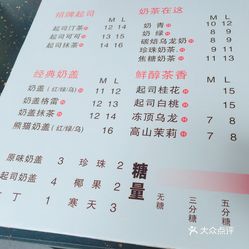 招牌起司 M L
起司汀茶 12 14
起司可可 13 16
起司抹茶 13 16
经典奶盖 M L
奶盖(红/绿/乌) 11 13
奶盖格雷 11 13
奶盖抹茶 12 14
熊猫奶盖(红/绿/乌) 16
奶茶在这 M L
奶青 10 12
奶绿 8 9
碳焙乌龙奶 10 12
珍珠奶茶 9 11
焦糖奶茶 10 12
鲜醇茶香 M L
起司桂花 11 14
起司白桃 12 15
冻顶乌龙 6 7
高山茉莉 6 7
原味奶盖 3 珍珠 2
起司奶盖 4 椰果 2
丁 1 寒天 3
糖量
无糖
三分糖
五分糖
大众点评